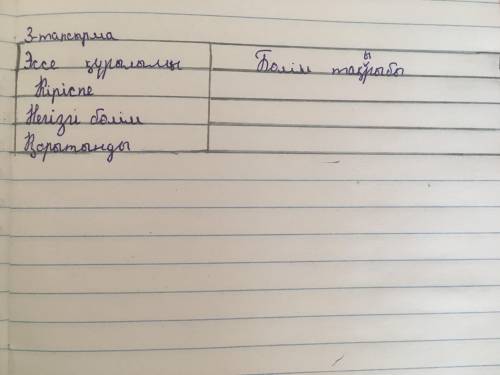 3-тапсырма
Эссе құрылымы Бөлім тақырыбы
Кіріспе
Негізгі бөлім
Қорытынды